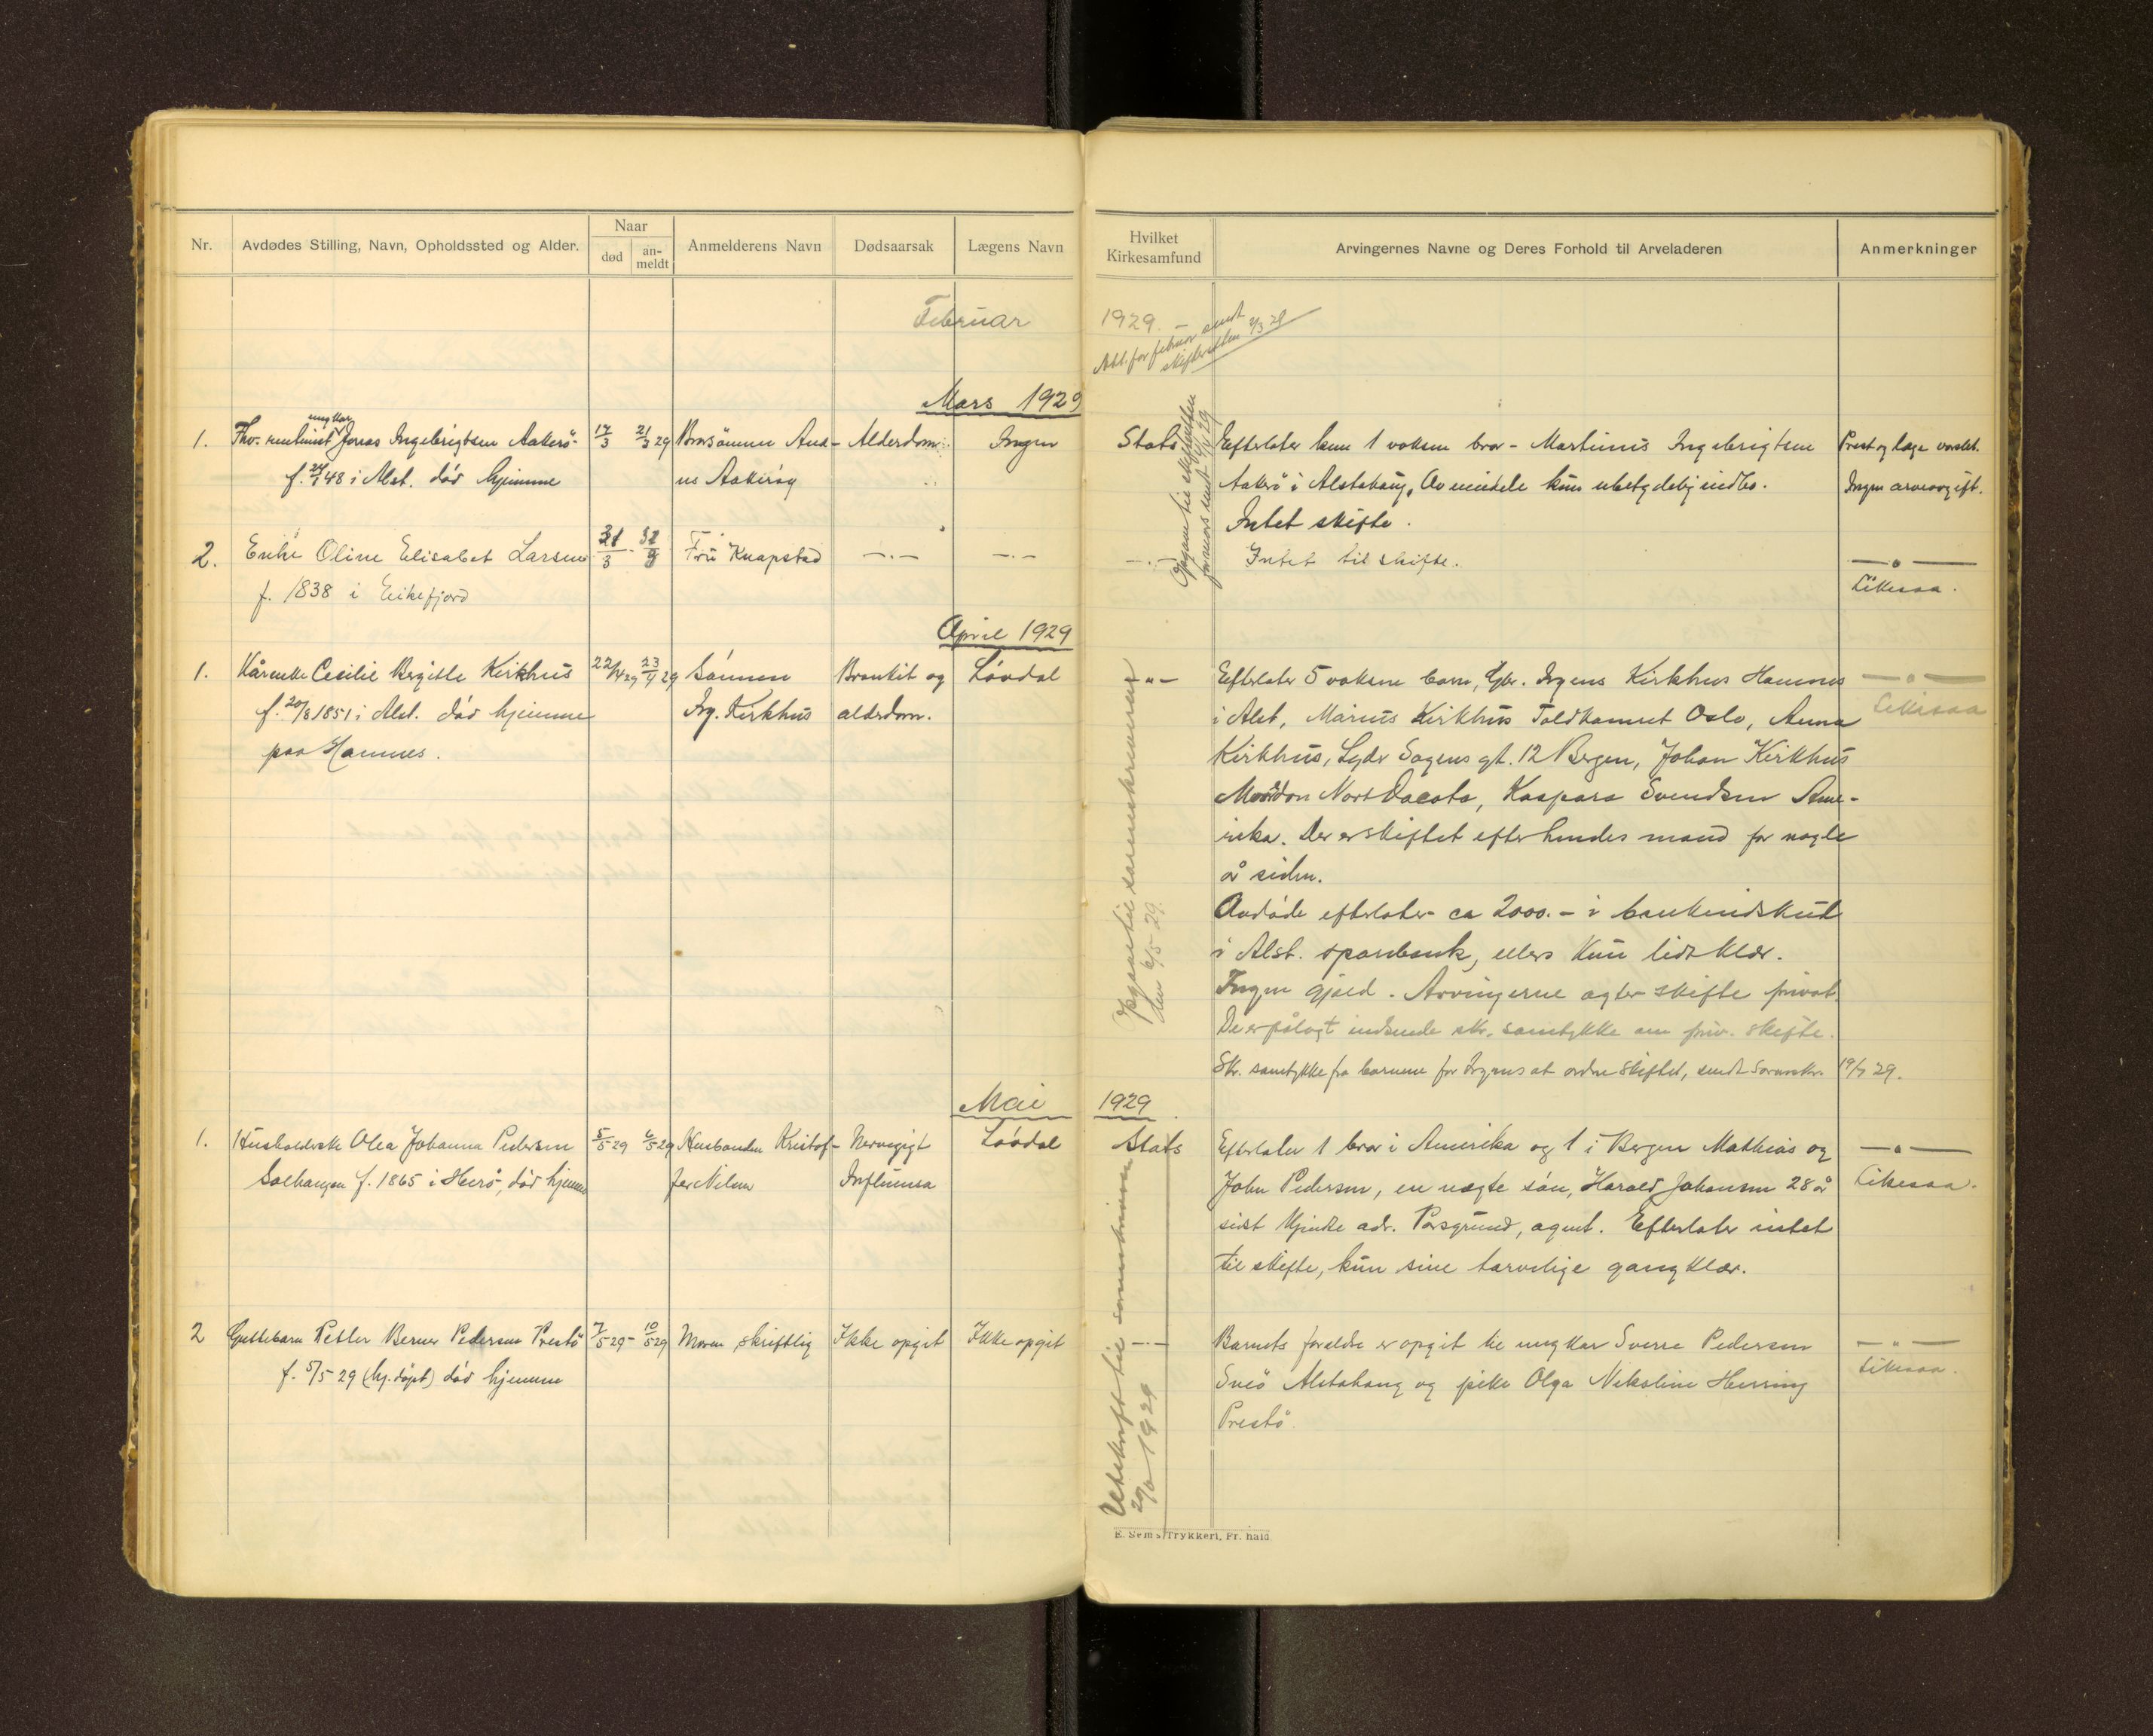 Nr.
Avdødes Stilling, Navn, Opholdssted og Alder.
Naar
død
an-
meldt
Anmelderens Navn
Dødsaarsak
Lægens Navn
Hvilket
Kirkesamfund
Arvingernes Navne og Deres Forhold til Arveladeren
Anmerkninger
Februar 1929.
Att. for februar sendt
skifteretten 2/3 29
Mars 1929
ungkar
1. Fhv. Jonas Ingebrigtsen Aakerö 17/3 21/3 29 Brorsönnen And- Alderdom Ingen Stats Efterlater kun 1 voksen bror - Martinus Ingebrigtsen Prest og læge varslet.
f. 24/1 48 i Alst. död hjemme Aakerö i Alstahaug. Av midele kun ubetydelig indbo. Ingen arveavgift.
Intet skifte.
2. Enke Oline Elisabet Larsen 31/3 Fru Knapstad —.— —.— —.— Intet til skifte. —„—
f. 1838 i Eikefjord Likesaa.
April 1929
1. Kårenke Cecilie Bergitte Kirkhus 22/4 29 23/4 29 Sönnen Bronkit og Lövdal —„— Efterlater 5 voksne barn, Gbr. Ingens Kirkhus Hamnes —„—
f. 20/8 1851 i Alst. död hjemme Ing. Kirkhus alderdom. i Alst, Marius Kirkhus Toldkamret Oslo, Anna Likesaa
paa Hamnes. Kirkhus, Lyder Sagens gt. 12 Bergen, Johan Kirkhus
Nort Dacota, Kaspara Svendsen Ame-
rika. Der er skiftet efter hendes mand for nogle
år siden.
Avdöde efterlater ca 2000.- i bankindskud
i Alst. sparebank, ellers kun lidt klær.
Ingen gjæld. Arvingerne agter skifte privat.
De er pålagt indsende skr. samtykke om priv. skifte.
Skr. samtykke fra barnene for Ingens at ordne skiftet, sendt Sorenskr. 19/7 29.
Opgave til sorenskriveren
den 6/5 29.
Mai 1929
1. Husholderske Olea Johanna Pedersen 5/5 29 6/5 29 Husbonden Kristof- Nervegigt Lövdal Stats Efterlater 1 bror i Amerika og 1 i Bergen Mathias og —„—
Solhaugen f. 1865 i Herö, död hjemme fer Nilsen Influensa John Pedersen, en uægte sön, Harald Johansen 28 år Likesaa.
sidst kjendte adr. Porsgrund, agent. Efterlater intet
til skifte, kun sine tarvelige gangklær.
2 Guttebarn Petter Berner Pedersen Prestö 7/5 29 - 10/5 29 Moren skriftlig Ikke opgit Ikke opgit —.— Barnets forældre er opgit te ungkar Sverre Pedersen —„—
f. 5/5 29 (hj.döpt) död hjemme Alstahaug og pike Olga Nikoline Herring Likesaa.
Prestö
Utskrift til sorenskriveren
29/6 1929
E. Sems Trykkeri, Fr. hald